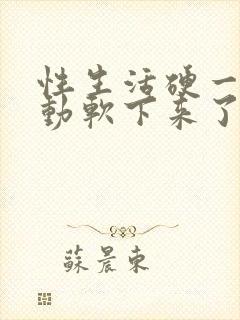 性生活硬一
動軟下来了
蘇晨東